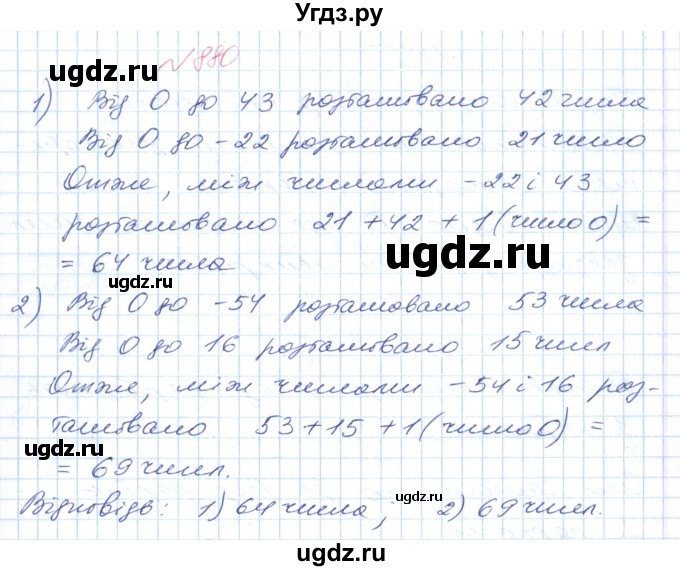 Угдз.ру
№880
1) Від 0 до 43 розташовано 42 числа
Від 0 до -22 розташовано 21 число
Отже, між числами -22 і 43
розташовано 21 + 42 + 1 (число 0) =
= 64 числа
2) Від 0 до -54 розташовано 53 числа
Від 0 до 16 розташовано 15 чисел
Отже, між числами -54 і 16 роз-
ташовано 53 + 15 + 1 (число 0) =
= 69 чисел.
Відповідь: 1) 64 числа; 2) 69 чисел.
ugdz.ru
ugdz.ru
ugdz.ru
ugdz.ru
ugdz.ru
ugdz.ru
ugdz.ru
ugdz.ru